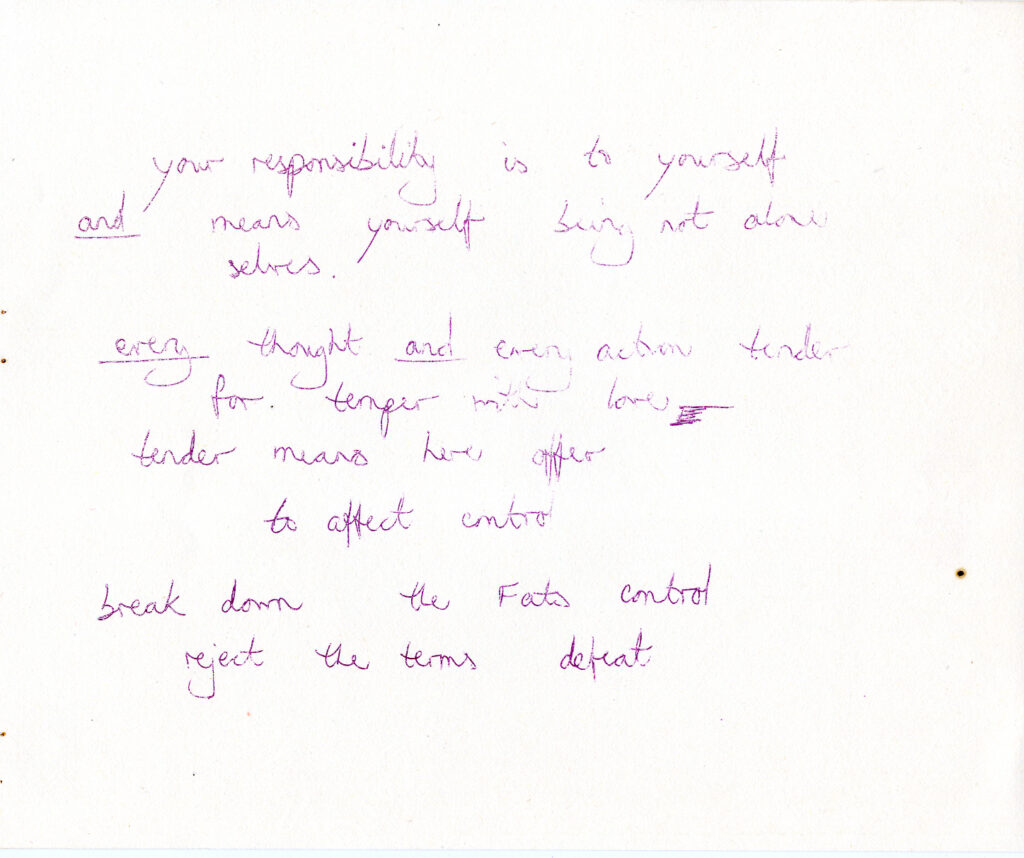 your responsibility is to yourself
and means yourself being not alone
selves.
every thought and every action tender
for. temper with love
tender means here offer
to affect control
break down the Fates control
reject the terms defeat